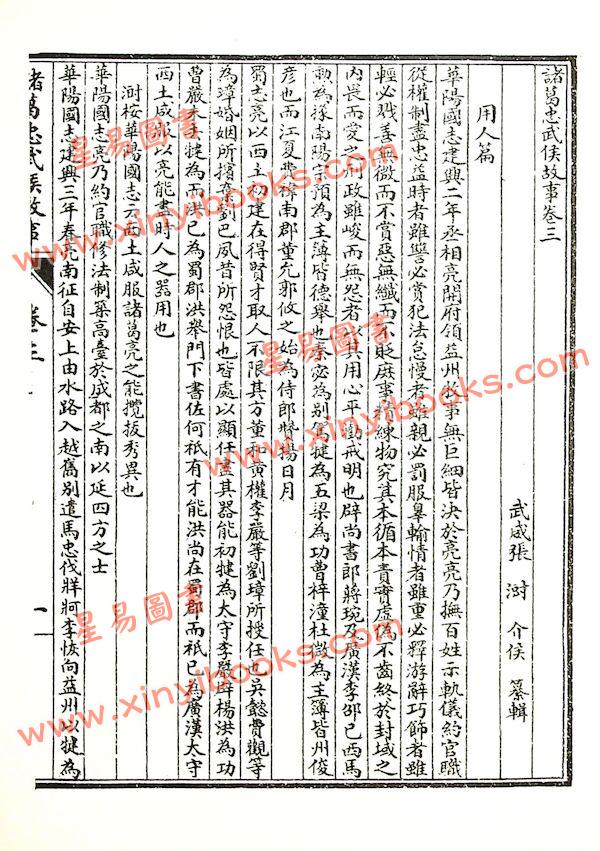 諸葛忠武侯故事卷三
武威張 澍 介侯 纂輯
用人篇
華陽國志建興二年丞相亮開府領益州牧事無巨細皆決於亮亮乃撫百姓示軌儀約官職
從權制盡忠益時者雖讐必賞犯法怠慢者雖親必罰服辠輸情者雖重必釋游辭巧飾者雖
輕必戮善無微而不賞惡無纖而不貶庶事精練物究其本循本責實虛偽不齒終於封域之
內畏而愛之刑政雖峻而無怨者以其用心平勸戒明也辟尚書郎蔣琬及廣漢李邵巴西馬
勳為掾南陽宗預為主簿皆德舉也秦宓為別駕犍為五梁為功曹梓潼杜微為主簿皆州俊
彥也而江夏費禕南郡董允郭攸之始為侍郎贊揚日月
蜀志亮以西土初建在得賢才取人不限其方董和黃權李嚴等劉璋所授任也吳懿費觀等
為璋婚姻所擯棄劉巴夙昔所怨恨也皆處以顯任盡其器能初犍為太守李嚴辟楊洪為功
曹嚴未去犍為而洪已為蜀郡洪舉門下書佐何祇有才能洪尚在蜀郡而祇已為廣漢太守
西土咸服以亮能盡時人之器用也
澍桉華陽國志云西土咸服諸葛亮之能攬拔秀異也
華陽國志亮乃約官職修法制築高臺於成都之南以延四方之士
華陽國志建興三年春亮南征自安上由水路入越嶲別遣馬忠伐牂柯李恢向益州以犍為
諸葛忠武侯故事
卷三
一
星易图書
www.xinyibooks.com
星易图書
www.xinyibooks.com
星易图書
www.xinyibooks.com